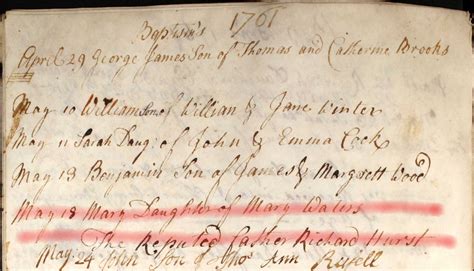 Baptism's 1761
April 29 George James Son of Thomas and Catherine Brooks
May 10 William Son of Willian & Jane Winter
May 11 Sarah Daug: of John & Emma Cook
May 18 Benjamin Son of James & Margarett Wood
May 18 Mary Daughter of Mary Waters
The Reputed Father Richard Hurst
May 24 John Son of Tho: Ann Russell